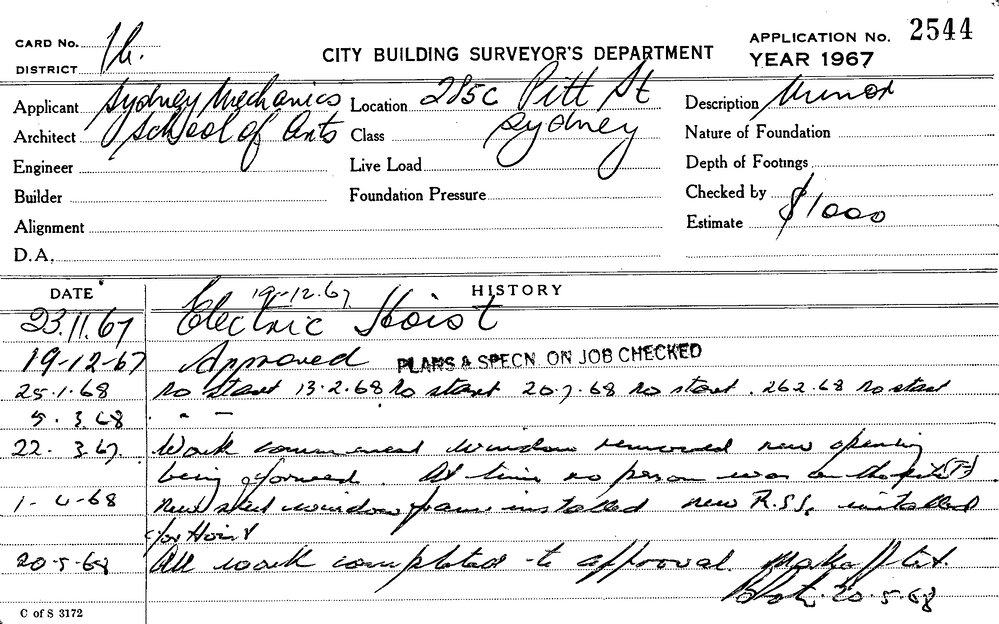 CARD No. 16.
DISTRICT
CITY BUILDING SURVEYOR'S DEPARTMENT
APPLICATION No. 2544
YEAR 1967
Applicant Sydney Mechanics Location 285c Pitt St Description Minor
Architect School of Arts Class Sydney Nature of Foundation
Engineer Live Load Depth of Footings
Builder Foundation Pressure Checked by
Alignment Estimate $1000
D.A.
DATE HISTORY
19-12.67
23.11.67 Electric Hoist
19-12-67 Approved PLANS & SPECN. ON JOB CHECKED
25.1.68 no start 13.2.68 no start 20.7.68 no start. 262.68 no start
5.3.68 " -
22.3.67 Work commenced window removed new opening
being formed. At time no person was on the
1-4-68 New steel window frame installed new R.S.J. installed
for Hoist
20-5-68 All work completed to approval.
20-5-68
C of S 3172